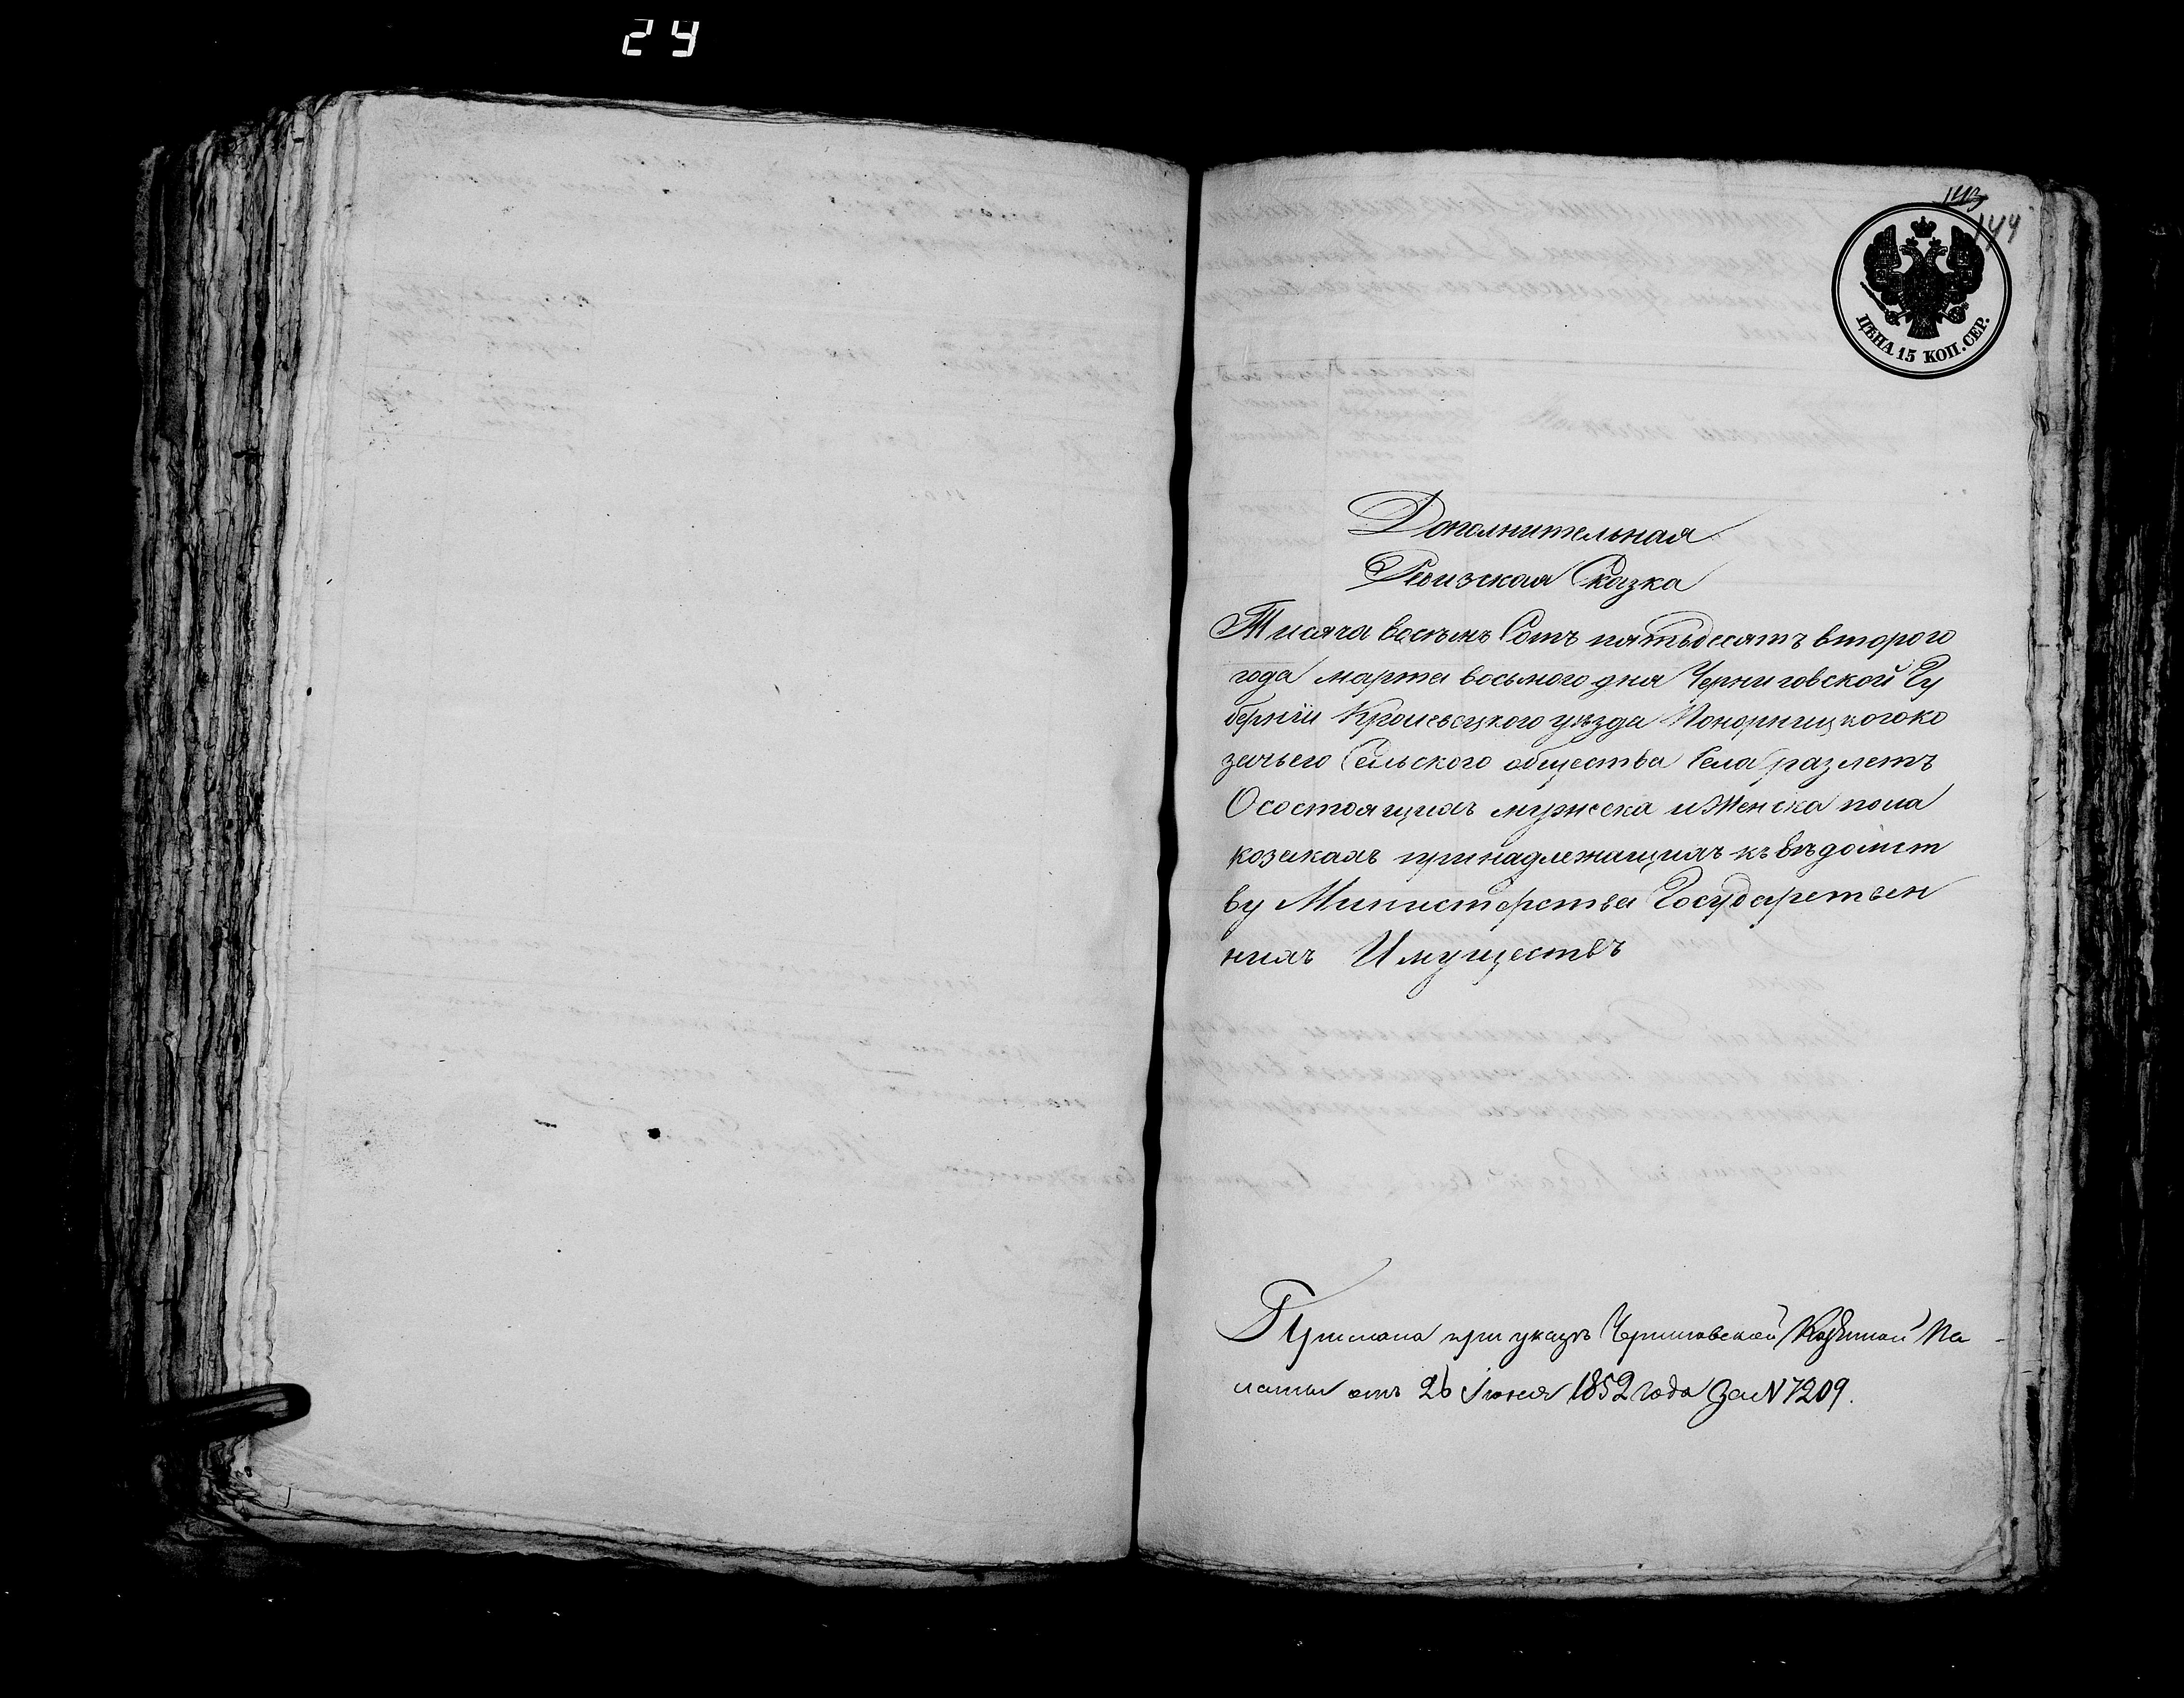 24
143
144
ЦѢНА 15 КОП. СЕР.
Дополнительная
Ревизская Сказка
Тисяча восемь Сотъ пятьдесятъ второго
года марта восьмого дня Черниговской Гу
берніи Кролевецкого уѣзда Понорницкого ко
зачьего Сельского общества Села разлетъ
О состоящихъ мужеска и Женска пола
козакахъ принадлежащихъ къ вѣдомст
ву Министерства Государствен
нихъ Имуществъ
Прислана при указѣ Черниговской Казенной Па
латы отъ 26 Іюня 1852 года За N 7209.